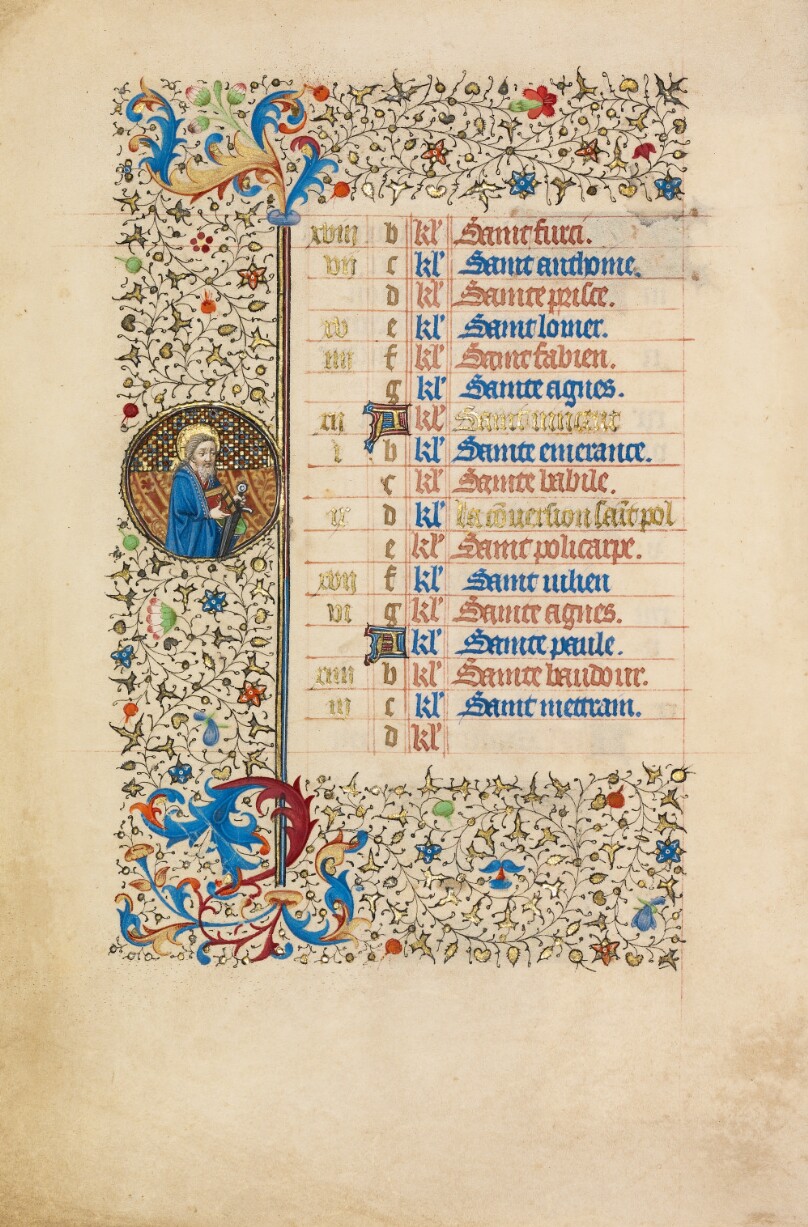 xviii b kl' Saint furci.
vii c kl' Saint anthoine.
d kl' Sainte prisce.
xv e kl' Saint lomer.
iiii f kl' Saint fabien.
g kl' Sainte agnes.
xii A kl' Saint vincent
i b kl' Sainte emerance.
c kl' Sainte babile.
ix d kl' la cõuersion saĩt pol
e kl' Saint policarpe.
xvii f kl' Saint iulien
vi g kl' Sainte agnes.
A kl' Sainte paule.
xiiii b kl' Sainte baudour.
iii c kl' Saint mettrain.
d kl'